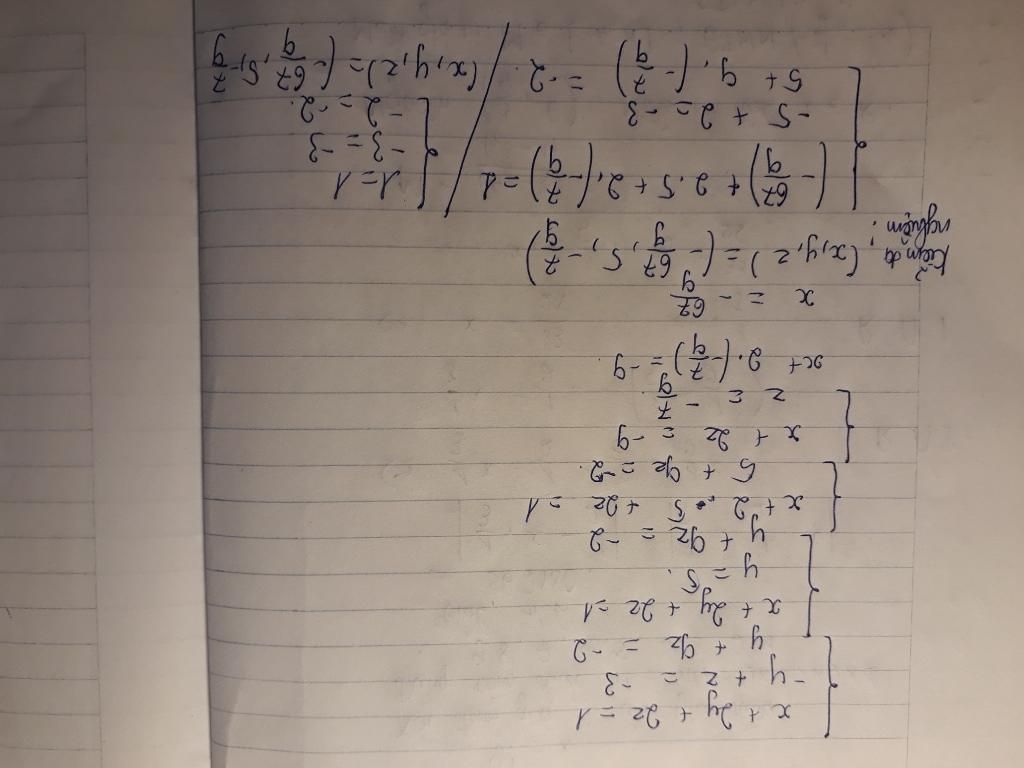 x + 2y + 2z = 1
- y + 2 = -3
y + 9z = -2
x + 2y + 2z = 1
y = 5.
y + 9z = -2
x + 2 . 5 + 2z = 1
5 + 9z = -2.
x + 2z = -9
z = -7/9.
x + 2.(-7/9) = -9.
x = -67/9
Kiểm
nghiệm:
(x, y, z) = (-67/9, 5, -7/9)
(-67/9) + 2.5 + 2.(-7/9) = 1
-5 + 2 = -3
5 + 9.(-7/9) = -2.
1 = 1
-3 = -3
-2 = -2.
(x, y, z) = (-67/9, 5, -7/9)